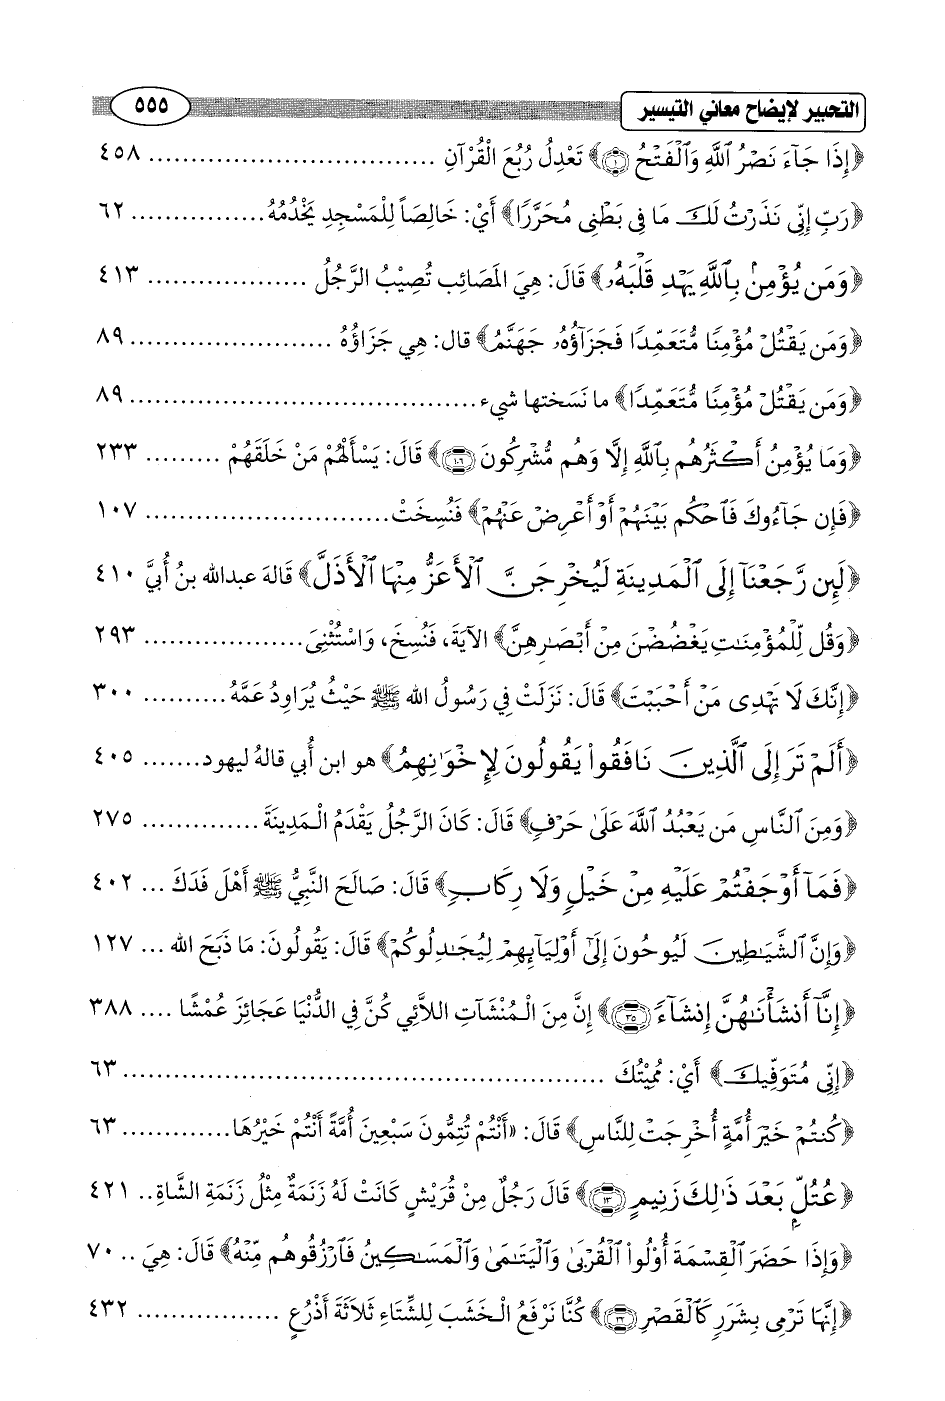 التحبير لإيضاح معاني التيسير ٥٥٥
﴿إِذَا جَآءَ نَصْرُ ٱللَّهِ وَٱلْفَتْحُ ۝١﴾ تَعْدِلُ رُبُعَ الْقُرْآنِ ................................ ٤٥٨
﴿رَبِّ إِنِّى نَذَرْتُ لَكَ مَا فِى بَطْنِى مُحَرَّرًا﴾ أَيْ: خَالِصَاً لِلْمَسْجِدِ يَخْدُمُهُ................ ٦٢
﴿وَمَن يُؤْمِنۢ بِٱللَّهِ يَهْدِ قَلْبَهُۥ﴾ قَالَ: هِيَ المَصَائِب تُصِيْبُ الرَّجُلُ .................. ٤١٣
﴿وَمَن يَقْتُلْ مُؤْمِنًا مُّتَعَمِّدًا فَجَزَآؤُهُۥ جَهَنَّمُ﴾ قال: هِي جَزَاؤُهُ ....................... ٨٩
﴿وَمَن يَقْتُلْ مُؤْمِنًا مُّتَعَمِّدًا﴾ ما نَسَختها شيء ....................................... ٨٩
﴿وَمَا يُؤْمِنُ أَكْثَرُهُم بِٱللَّهِ إِلَّا وَهُم مُّشْرِكُونَ ۝١٠٦﴾ قَالَ: يَسْأَلُهُمْ مَنْ خَلَقَهُمْ ......... ٢٣٣
﴿فَإِن جَآءُوكَ فَٱحْكُم بَيْنَهُمْ أَوْ أَعْرِضْ عَنْهُمْ﴾ فَنُسِخَتْ........................... ١٠٧
﴿لَئِن رَّجَعْنَآ إِلَى ٱلْمَدِينَةِ لَيُخْرِجَنَّ ٱلْأَعَزُّ مِنْهَا ٱلْأَذَلَّ﴾ قَالهَ عبدالله بنُ أُبيَّ ٤١٠
﴿وَقُل لِّلْمُؤْمِنَٰتِ يَغْضُضْنَ مِنْ أَبْصَٰرِهِنَّ﴾ الآيَةَ، فَنُسِخَ، وَاسْتُثْنِىَ.................. ٢٩٣
﴿إِنَّكَ لَا تَهْدِى مَنْ أَحْبَبْتَ﴾ قَالَ: نَزَلَتْ فِي رَسُولُ الله ﷺ حَيْثُ يُرَاوِدُ عَمَّهُ.......... ٣٠٠
﴿أَلَمْ تَرَ إِلَى ٱلَّذِينَ نَافَقُوا۟ يَقُولُونَ لِإِخْوَٰنِهِمُ﴾ هو ابن أُبي قالهُ ليهود....... ٤٠٥
﴿وَمِنَ ٱلنَّاسِ مَن يَعْبُدُ ٱللَّهَ عَلَىٰ حَرْفٍ﴾ قَالَ: كَانَ الرَّجُلُ يَقْدَمُ الْمَدِينَةَ ............. ٢٧٥
﴿فَمَآ أَوْجَفْتُمْ عَلَيْهِ مِنْ خَيْلٍ وَلَا رِكَابٍ﴾ قَالَ: صَالَحَ النَّبِيُّ ﷺ أَهْلَ فَدَكَ ... ٤٠٢
﴿وَإِنَّ ٱلشَّيَٰطِينَ لَيُوحُونَ إِلَىٰٓ أَوْلِيَآئِهِمْ لِيُجَٰدِلُوكُمْ﴾ قَالَ: يَقُولُونَ: مَا ذَبَحَ الله ... ١٢٧
﴿إِنَّآ أَنشَأْنَٰهُنَّ إِنشَآءً ۝٣٥﴾ إِنَّ مِنَ الْمُنْشَآتِ اللاَّئِي كُنَّ فِي الدُّنْيَا عَجَائِزَ عُمْشًا .... ٣٨٨
﴿إِنِّى مُتَوَفِّيكَ﴾ أَيْ: مُمِيْتُكَ ..................................................... ٦٣
﴿كُنتُمْ خَيْرَ أُمَّةٍ أُخْرِجَتْ لِلنَّاسِ﴾ قَالَ: «أَنْتُمْ تُتِمُّونَ سَبْعِينَ أُمَّةً أَنْتُمْ خَيْرُهَا............ ٦٣
﴿عُتُلٍّۭ بَعْدَ ذَٰلِكَ زَنِيمٍ ۝١٣﴾ قَالَ رَجُلٌ مِنْ قُرَيْشٍ كَانَتْ لَهُ زَنَمَةٌ مِثْلُ زَنَمَةِ الشَّاةِ.. ٤٢١
﴿وَإِذَا حَضَرَ ٱلْقِسْمَةَ أُو۟لُوا۟ ٱلْقُرْبَىٰ وَٱلْيَتَٰمَىٰ وَٱلْمَسَٰكِينُ فَٱرْزُقُوهُم مِّنْهُ﴾ قَالَ: هِيَ .. ٧٠
﴿إِنَّهَا تَرْمِى بِشَرَرٍ كَٱلْقَصْرِ ۝٣٢﴾ كُنَّا نَرْفَعُ الْخَشَبَ لِلشِّتَاءِ ثَلاَثَةَ أَذْرُعٍ ................ ٤٣٢